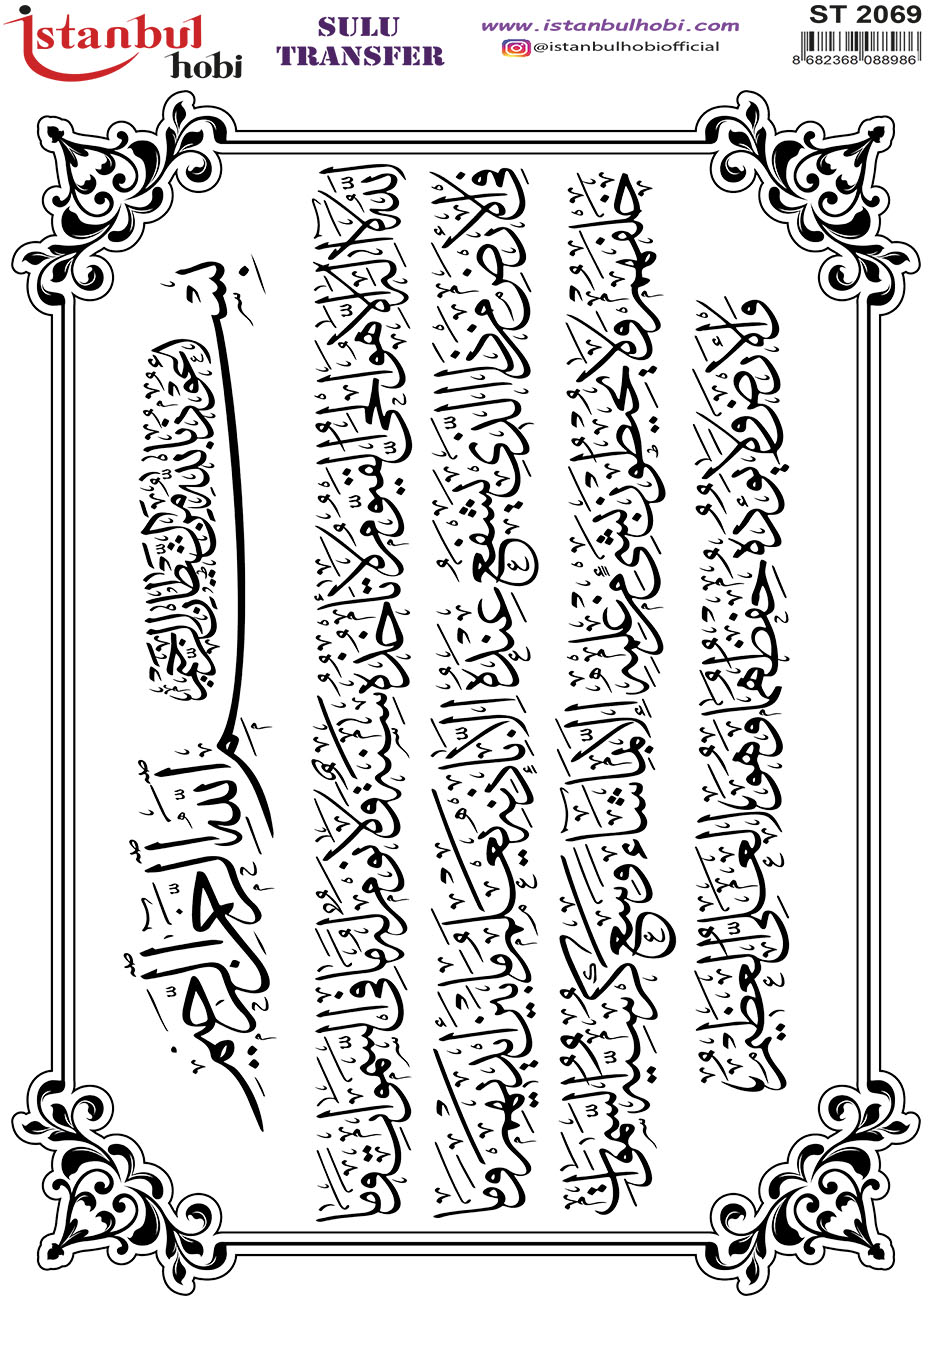 istanbul
hobi
SULU
TRANSFER
www.istanbulhobi.com
@istanbulhobiofficial
ST 2069
8 682368 088986
اعوذ بالله من الشيطان الرجيم
بسم الله الرحمن الرحيم
الله لا اله الا هو الحي القيوم لا تاخذه سنة ولا نوم له ما في السموات وما
في الارض من ذا الذي يشفع عنده الا باذنه يعلم ما بين ايديهم وما
خلفهم ولا يحيطون بشيء من علمه الا بما شاء وسع كرسيه السموات
والارض ولا يؤده حفظهما وهو العلي العظيم